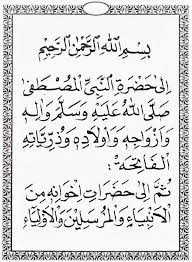 بِسْمِ اللهِ الرَّحْمٰنِ الرَّحِيْمِ
اِلَى حَضْرَةِ النَّبِيِّ الْمُصْطَفَى
صَلَّى اللهُ عَلَيْهِ وَسَلَّمَ وَاٰلِهِ
وَاَزْوَاجِهِ وَاَوْلَادِهِ وَذُرِّيَّاتِهِ
اَلْفَاتِحَةُ:
ثُمَّ اِلَى حَضَرَاتِ اِخْوَانِهِ مِنَ
الْاَنْبِيَاءِ وَالْمُرْسَلِيْنَ وَالْاَوْلِيَاءِ